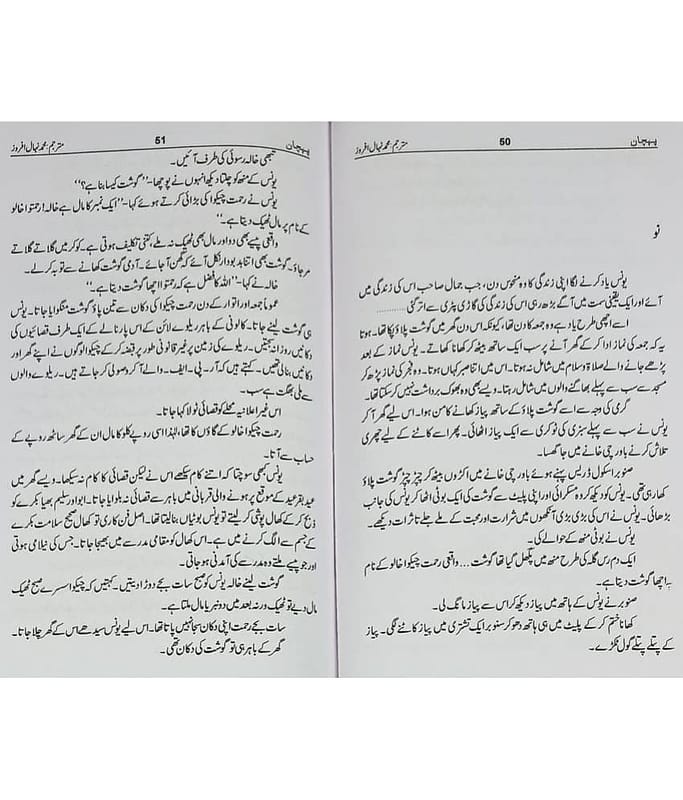 پہچان 50 مترجم: محمد نہال افروز
نو
یونس یاد کرنے لگا اپنی زندگی کا وہ منحوس دن، جب جمال صاحب اس کی زندگی میں
آئے اور ایک یقینی سمت میں آگے بڑھ رہی اس کی زندگی کی گاڑی پٹری سے اتر گئی............
اسے اچھی طرح یاد ہے وہ جمعہ کا دن تھا، کیونکہ اس دن گھر میں گوشت پلاؤ پکا تھا۔ ہوتا
یہ کہ جمعہ کی نماز ادا کر کے گھر آنے پر سب ایک ساتھ بیٹھ کر کھانا کھاتے۔ یونس نماز کے بعد
پڑھے جانے والے صلاۃ و سلام میں شامل نہ ہوتا۔ اس میں اتنا صبر کہاں ہوتا۔ وہ فجر کی نماز پڑھ کر
مسجد سے سب سے پہلے بھاگنے والوں میں شامل رہتا۔ ویسے بھی وہ بھوک برداشت نہیں کر سکتا تھا۔
گرمی کی وجہ سے اسے گوشت پلاؤ کے ساتھ پیاز کھانے کا من ہوا۔ اس لیے گھر آ کر
یونس نے سب سے پہلے سبزی کی ٹوکری سے ایک پیاز اٹھائی۔ پھر اسے کاٹنے کے لیے چھری
تلاش کرنے باورچی خانے میں جا گھسا۔
صنوبر اسکول ڈریس پہنے ہوئے باورچی خانے میں اکڑوں بیٹھ کر چپڑ چپڑ گوشت پلاؤ
کھا رہی تھی۔ یونس کو دیکھ کر وہ مسکرائی اور اپنی پلیٹ سے گوشت کی ایک بوٹی اٹھا کر یونس کی جانب
بڑھائی۔ یونس نے اس کی بڑی بڑی آنکھوں میں شرارت اور محبت کے ملے جلے تاثرات دیکھے۔
یونس نے بوٹی منھ کے حوالے کی۔
ایک دم رس گلہ کی طرح منھ میں پگھل گیا تھا گوشت... واقعی رحمت چیکوا خالو کے نام
پہ اچھا گوشت دیتا ہے۔
صنوبر نے یونس کے ہاتھ میں پیاز دیکھ کر اس سے پیاز مانگ لی۔
کھانا ختم کر کے پلیٹ میں ہی ہاتھ دھو کر صنوبر ایک تشتری میں پیاز کاٹنے لگی۔ پیاز
کے پتلے پتلے گول ٹکڑے۔
پہچان 51 مترجم: محمد نہال افروز
تبھی خالہ رسوئی کی طرف آئیں۔
یونس کے منھ کو چلتا دیکھ انہوں نے پوچھا۔ ”گوشت کیسا بنا ہے؟“
یونس نے رحمت چیکوا کی بڑائی کرتے ہوئے کہا۔ ”ایک نمبر کا مال ہے خالہ! رحمتوا خالو
کے نام پر مال ٹھیک دیتا ہے۔“
واقعی پیسے بھی دو اور مال بھی ٹھیک نہ ملے، کتنی تکلیف ہوتی ہے۔ کوکر میں گلاتے گلاتے
مر جاؤ۔ گوشت بھی اتنا بدبودار نکل آئے کہ گھن آ جائے۔ آدمی گوشت کھانے سے توبہ کر لے۔
خالہ نے کہا۔ ”اللہ کا فضل ہے کہ رحمتوا اچھا گوشت دیتا ہے۔“
عموماً جمعہ اور اتوار کے دن رحمت چیکوا کی دکان سے تین پاؤ گوشت منگوایا جاتا۔ یونس
ہی گوشت لینے جاتا۔ کالونی کے باہر ریلوے لائن کے اس پار نالے کے ایک طرف قصائیوں کی
دکانیں روزانہ سجتیں۔ ریلوے کی زمین پر غیر قانونی طور پر قبضہ کر کے چیکوا لوگوں نے اپنے گھر اور
دکانیں بنالی تھیں۔ کہتے ہیں کہ آر۔ پی۔ ایف۔ والے آ کر وصولی کر جاتے ہیں۔ ریلوے والوں
سے ملی بھگت ہے سب۔
اس غیر اعلانیہ محلے کو قصائی ٹولا کہا جاتا۔
رحمت چیکوا خالو کے گاؤں کا تھا، لہٰذا اسی روپے کلو کا مال ان کے گھر ساٹھ روپے کے
حساب سے آتا۔
یونس کبھی سوچتا کہ اتنے کام سیکھے اس نے لیکن قصائی کا کام نہ سیکھا۔ ویسے گھر میں
عید بقرعید کے موقع پر ہونے والی قربانی میں باہر سے قصائی نہ بلوایا جاتا۔ ابو اور سلیم بھیا بکرے کو
ذبح کر کے کھال پوشی کر لیتے تو یونس بوٹیاں بنالیتا تھا۔ اصل فن کاری تو کھال صحیح سلامت بکرے
کے جسم سے الگ کرنے میں ہے۔ اس کھال کو مقامی مدرسے میں بھیجا جاتا۔ جس کی نیلامی ہوتی
اور جو پیسے ملتے وہ مدرسے کی آمدنی ہو جاتی۔
گوشت لینے خالہ یونس کو صبح سات بجے دوڑا دیتیں۔ کہتیں کہ چیکوا سسرے صبح ٹھیک
مال دیے تو ٹھیک ورنہ بعد میں دو نمبر یا مال ملتا ہے۔
سات بجے رحمت اپنی دکان سجا نہیں پاتا تھا۔ اس لیے یونس سیدھے اس کے گھر چلا جاتا۔
گھر کے باہر ہی تو گوشت کی دکان تھی۔